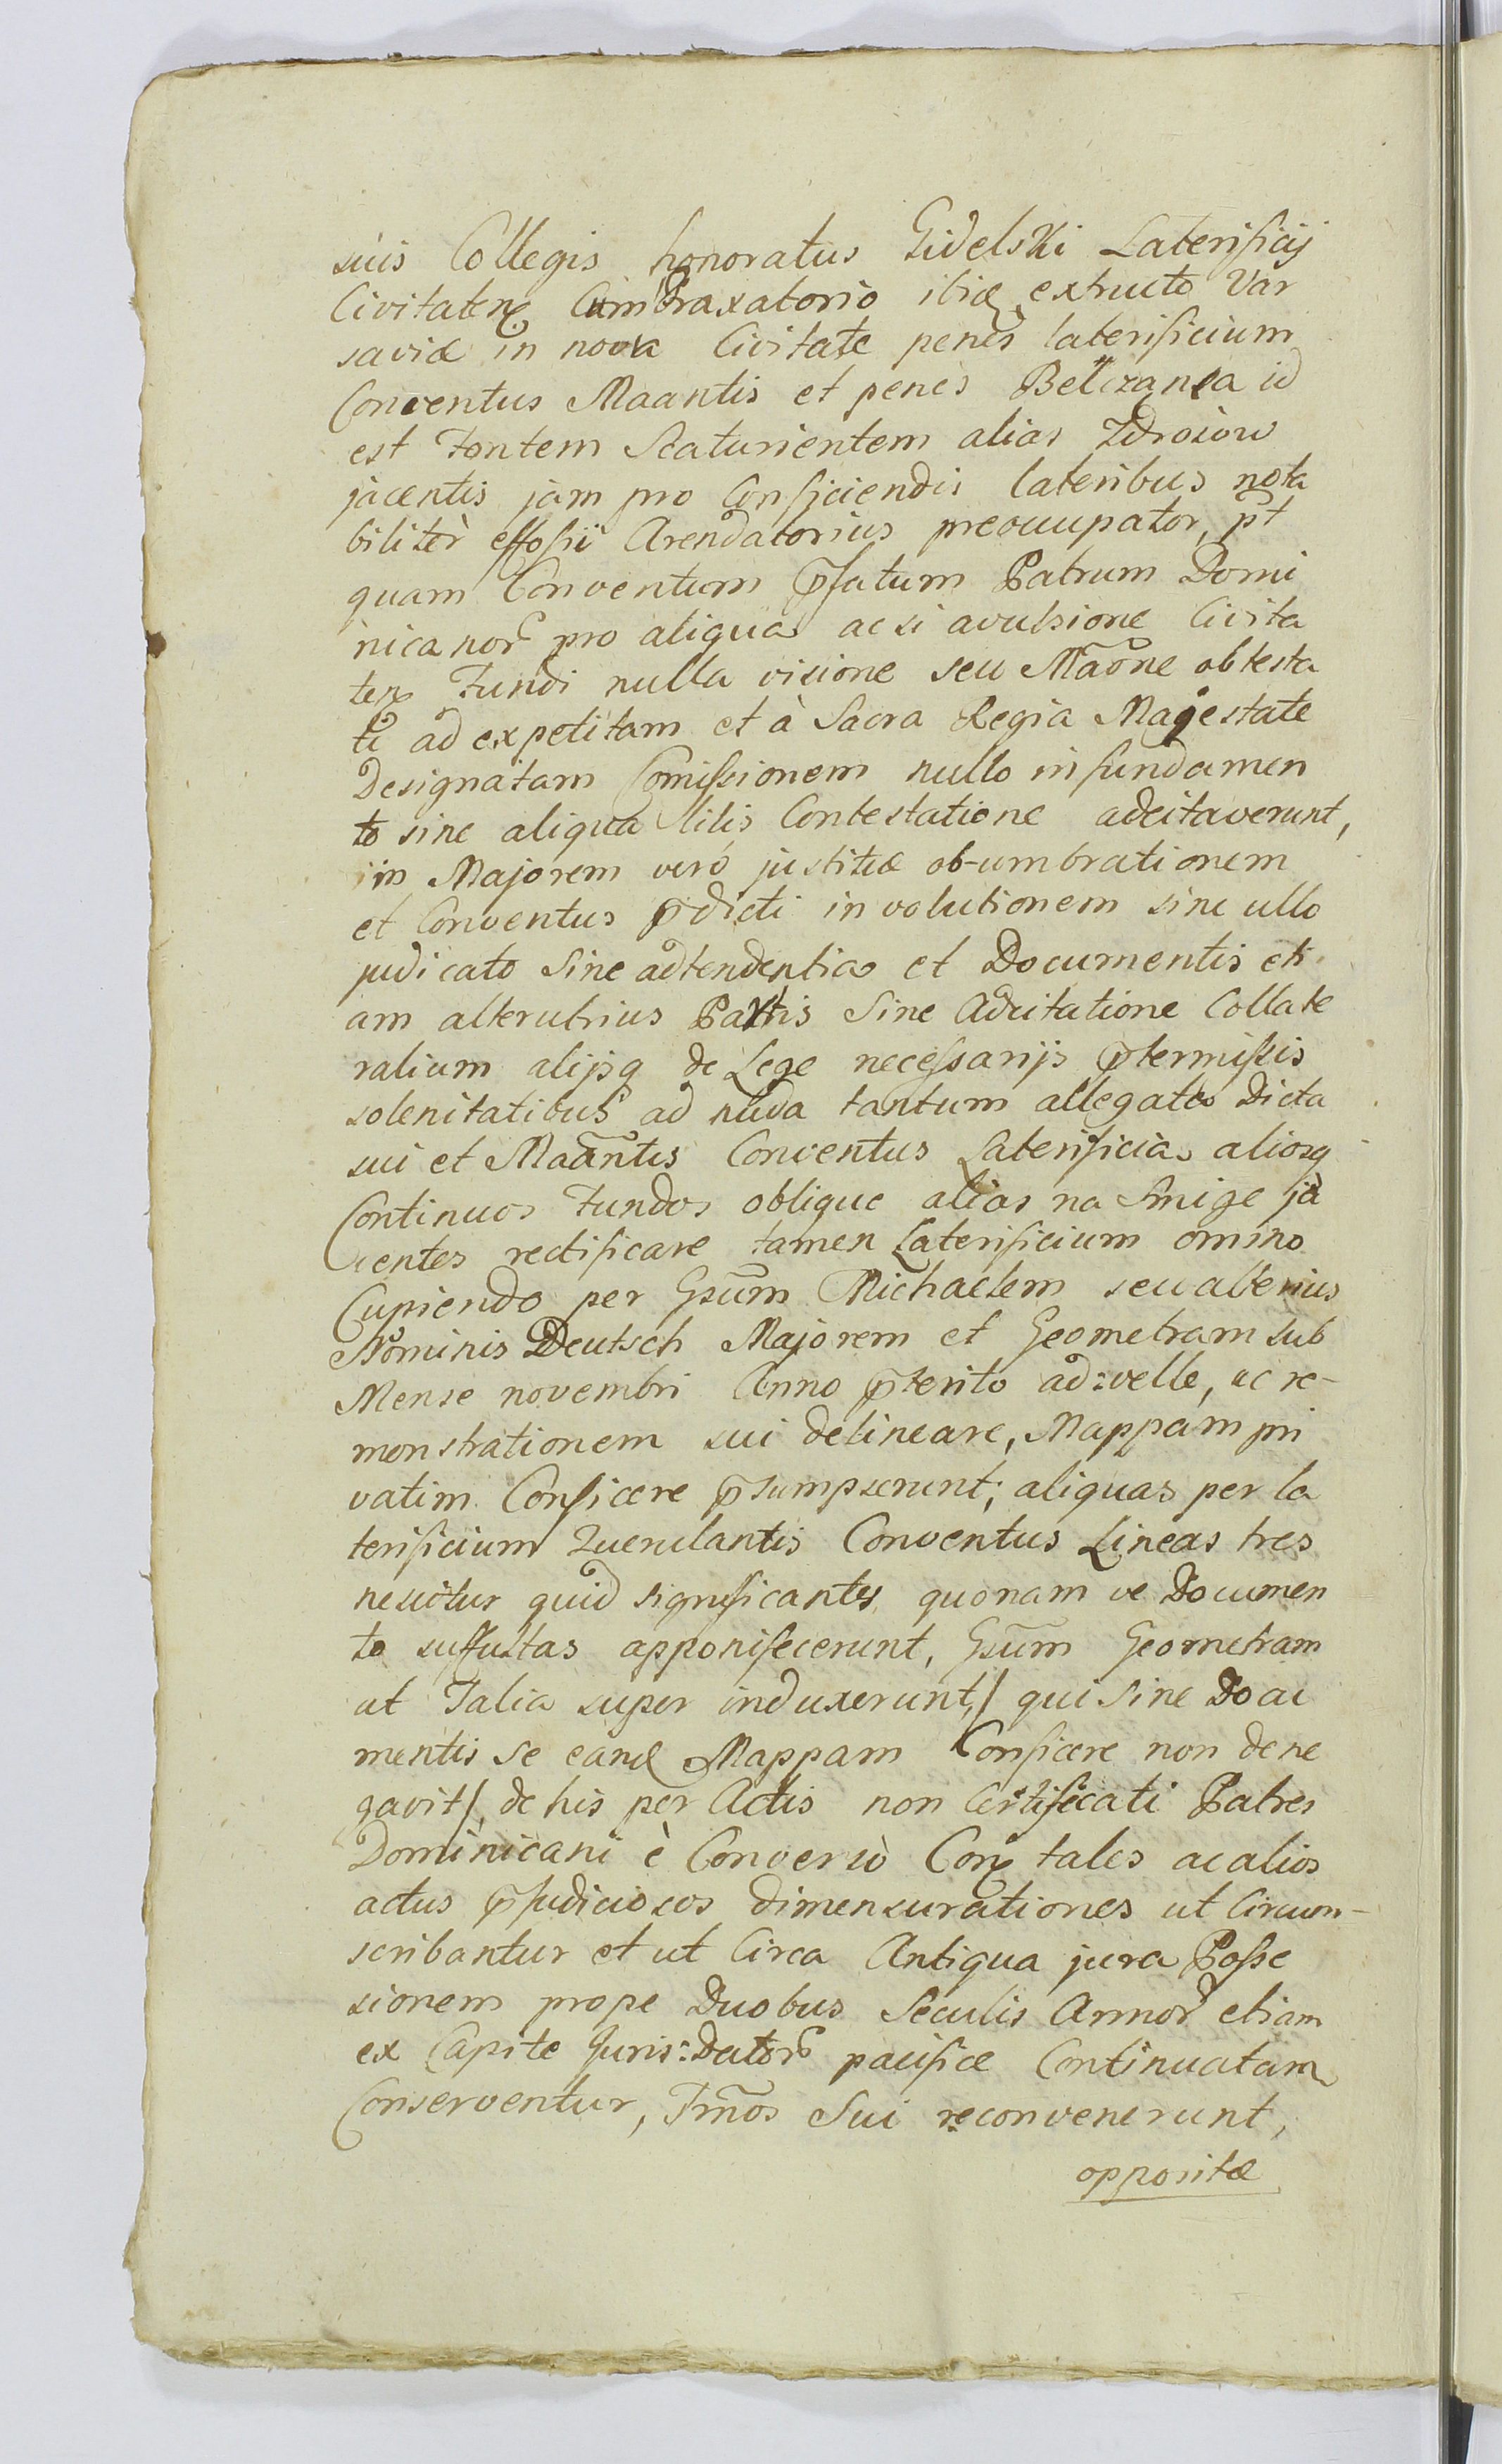 suis Collegis honoratus Gidelski Laterificij
Civitaten cum Braxatorio ibid extructo Var
saviæ in nova Civitate penes laterificium
Conventus Maantis et penes Bełczanca id
est Fontem Scaturientem alias Zdroiow
jacentis jam pro Conficiendis lateribus nota
biliter effosii Arendatorius preoccupator, pt
quam Conventum pfatum Patrum Domi
nicanor pro aliqua ac si avulsione Civita
ten Fundi nulla visione seu Maõne obtesta
ti ad expetitam et à Sacra Regia Majestate
Designatam Comissionem nullo in fundamen
to sine aliqua litis Contestatione adcitaverunt,
in Majorem vero justitiæ ob-umbrationem
et Conventus pdicti involutionem sine ullo
judicato sine adtendentia et Documentis eti
am alterutrius Partis sine Adcitatione Collate
ralium alijsq de Lege necessarijs ptermissis
solenitatibus ad nuda tantum allegata Dicta
sui et Maantis Conventus Laterificia aliosq
Continuos Fundos oblique alias na Smige ja
centes rectificare tamen Laterificium omino
Cupiendo per Gsum Michaelem seu alterius
Nominis Deutsch Majorem et Geometram sub
Mense novembri Anno pterito ad:velle, ac re-
monstrationem sui delineare, Mappam pri
vatim Conficere psumpserunt; aliquas per la
terificium Querulantis Conventus Lineas tres
nescitur quid significantes quonam ve Documen
to suffultas apponifecerunt, Gsum Geometram
ut Talia super induxerunt,/ qui sine Docu
mentis se eand Mappam Conficere non dene
gavit/, de his per Actis non Certificati Patres
Dominicani è Converso Con tales ac alios
actus pjudiciosos dimensurationes ut Circum-
scribantur et ut Circa Antiqua jura Posse
sionem prope Duobus Seculis Annor etiam
ex Capite Juris:Dator pacifice Continuatam
Conserventur, Tmos Sui reconvenerunt,
oppositæ